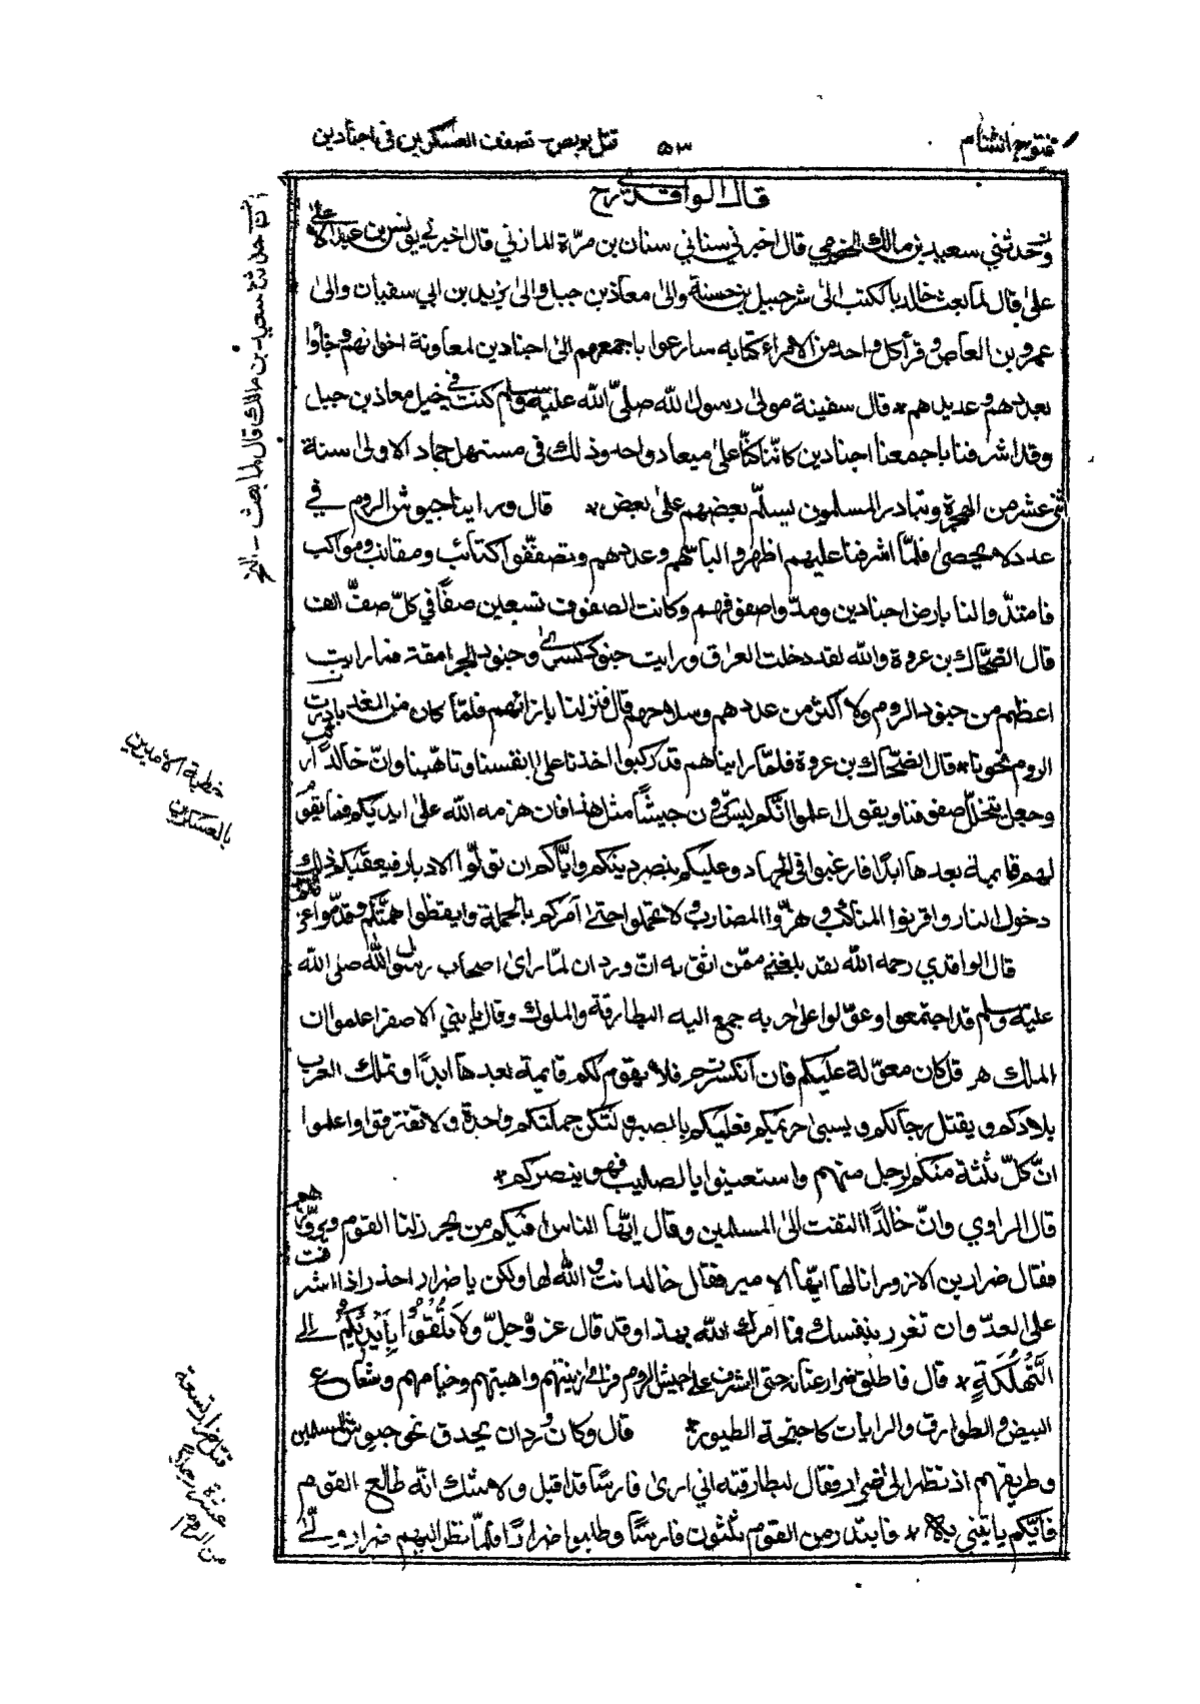 فتوح الشام
٥٣
قتل بولص - تصفف العسكرين في اجنادين
قال الواقدي رح
وحدثني سعيد بن مالك قال اخبرني سناني سنان بن مرّة المازني قال اخبرني يونس بن عبد الا
على قال لما بعث خالد بالكتب الى شرحبيل بن حسنة والى معاذ بن جبل والى يزيد بن ابي سفيان والى
عمرو بن العاص وقرأ كل واحد من الامراء كتابه سارعوا باجمعهم الى اجنادين لمعاونة اخوانهم وجاؤا
بعددهم وعديدهم * قال سفينة مولى رسول الله صلى الله عليه وسلم كنت في خيل معاذ بن جبل
وقد اشرفنا باجمعنا اجنادين كانّنا كنّا على ميعاد واحد وذلك في مستهل جماد الاولى سنة
ثنى عشر من الهجرة وتبادر المسلمون يسلّم بعضهم على بعض * قال وراينا جيوش الروم في
عدد لا يحصى فلمّا اشرفنا عليهم اظهروا الباسهم وعددهم وتصفّفوا كتائب ومقانب ومواكب
فامتدّوا لنا بارض اجنادين ومدّوا صفوفهم وكانت الصفوف تسعين صفّا في كلّ صفّ الف
قال الضحّاك بن عروة والله لقد دخلت العراق ورايت جنود كسرى وجنود الجرامقة فما رايت
اعظم من جنود الروم ولا اكثر من عددهم وسلاحهم قال فنزلنا بازائهم فلمّا كان من الغد بادرت
الروم نحونا * قال الضحّاك بن عروة فلمّا رايناهم قد ركبوا اخذنا على انفسنا وتاهّبنا وانّ خالدًا ركب
وجعل يتخلّل صفوفنا ويقول اعلموا انّكم ليس ترون جيشًا مثل هذا فان هزمه الله على ايديكم فما يقوم
لهم قايمة بعدها ابدًا فارغبوا في الجهاد وعليكم بنصر دينكم وايّاكم ان تولّوا الادبار فيعقبكم ذلك
دخول النار واقرنوا المناكب وهزّوا المضارب ولا تحملوا حتى آمركم بالحملة وايقظوا هممكم وقدّموا عزائمكم
قال الواقدي رحمه الله لقد بلغني ممّن اثق به انّ وردان لمّا راى اصحاب رسول الله صلى الله
عليه وسلم قد اجتمعوا وعوّلوا على حربه جمع اليه البطارقة والملوك وقال يا بني الاصفر اعلموا ان
الملك هرقل كان معوّلة عليكم فان انكسرتم فلا يقوم لكم قايمة بعدها ابدًا وتملك العرب
بلادكم ويقتل رجالكم ويسبى حريمكم فعليكم بالصبر ولتكن حملتكم واحدة ولا تفترقوا واعلموا
انّ كلّ ثلثة منكم لرجل منهم واستعينوا بالصليب فهو ينصركم *
قال الراوي وانّ خالدًا التفت الى المسلمين وقال ايّها الناس افيكم من يحرز لنا القوم ويروّعهم
فقال ضرار بن الازور انا لها ايّها الامير فقال خالد انت والله لها ولكن يا ضرار احذر اذا اشرفت
على العدوّ ان تغرر بنفسك فما امرك الله بهذا وقد قال عزّ وجلّ وَلَا تُلْقُوا بِأَيْدِيكُمْ إِلَى
التَّهْلُكَةِ * قال فاطلق ضرار عنانه حتى اشرف على جيش الروم فراى زينتهم واهبتهم وخيامهم وشعاع
البيض والطوارق والرايات كاجنحة الطيور * قال وكان وردان يحدق نحو جيوش المسلمين
وطريقهم اذ نظر الى ضرار فقال لبطارقته اني ارى فارسًا قد اقبل ولا شك انّه طالع القوم
فايّكم ياتيني به * فابتدر من القوم ثلثون فارسًا وطلبوا ضرارًا فلمّا نظر اليهم ضرار ولّى
حدثني سعيد بن مالك قال لما بعث - الخ
خطبة الاميرين
بالعسكرين
قتل ضرار تسعة
عشرة رجلا
من الروم